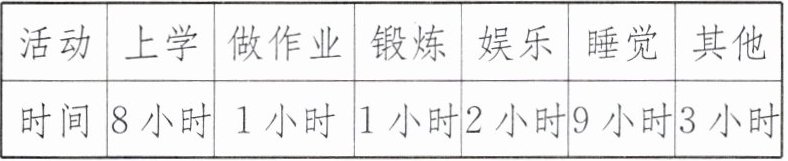 活动 上学 做作业 锻炼 娱乐 睡觉 其他
时间 8小时 1小时 1小时 2小时 9小时 3小时